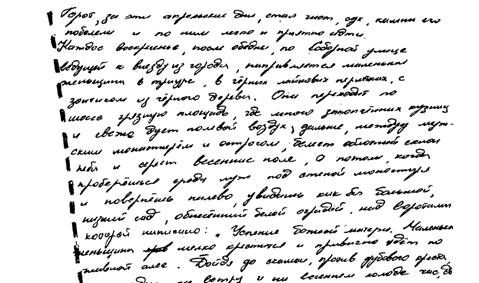 Город, за эти апрельские дни, стал чист, сух, камни его
побелели и по ним легко и приятно идти.
Каждое воскресенье, после обедни, по соборной улице
ведущей к выезду из города, направляется маленькая
женщина в трауре, в чёрных лайковых перчатках, с
зонтиком из чёрного дерева. Она переходит по
шоссе грязную площадь, где много закопчённых кузниц
и свежо дует полевой воздух; дальше, между муж-
ским монастырём и острогом, белеет облачный склон
неба и сереет весеннее поле, а потом, когда
проберёшься среди луж под стеной монастыря
и повернёшь налево, увидишь как бы большой,
низкий сад, обнесённый белой оградой, над воротами
которой написано: "Успение божией матери. Маленькая
женщина мелко крестится и привычно идёт по
главной аллее. Дойдя до скамьи, против дубового креста,
на ветру и на весеннем холоде час, два